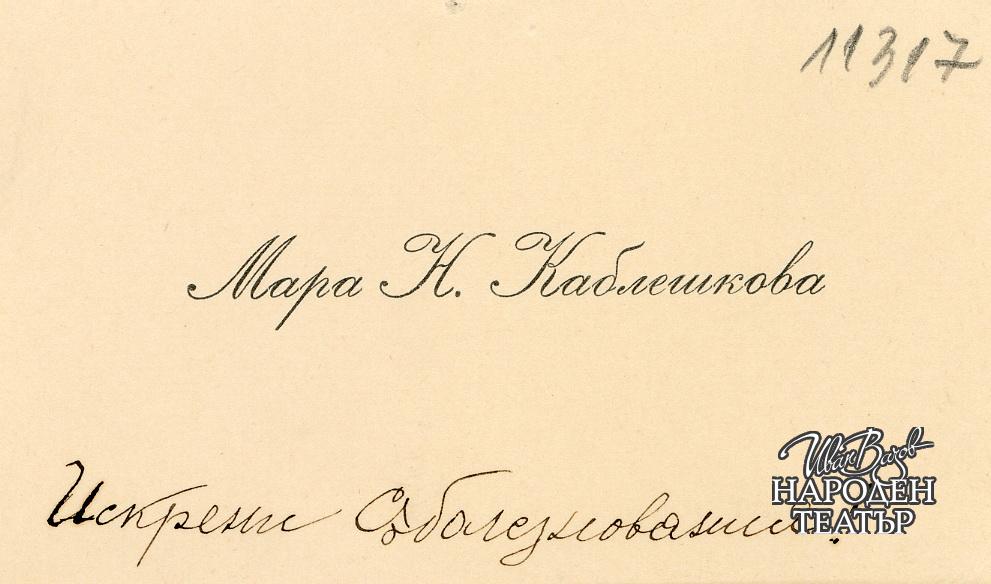 11317
Мара Н. Каблешкова
Искрени Съболезнования!
Иван Вазов
НАРОДЕН
ТЕАТЪР